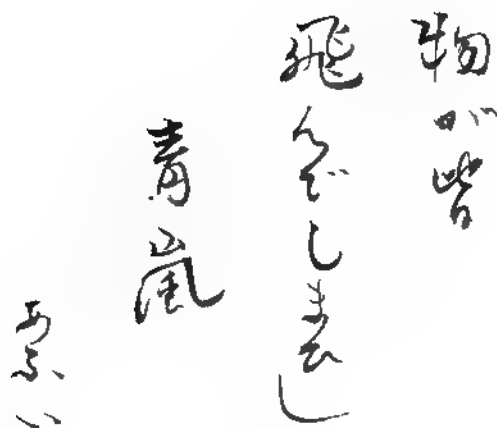 物が皆
飛んでしまひし
青嵐